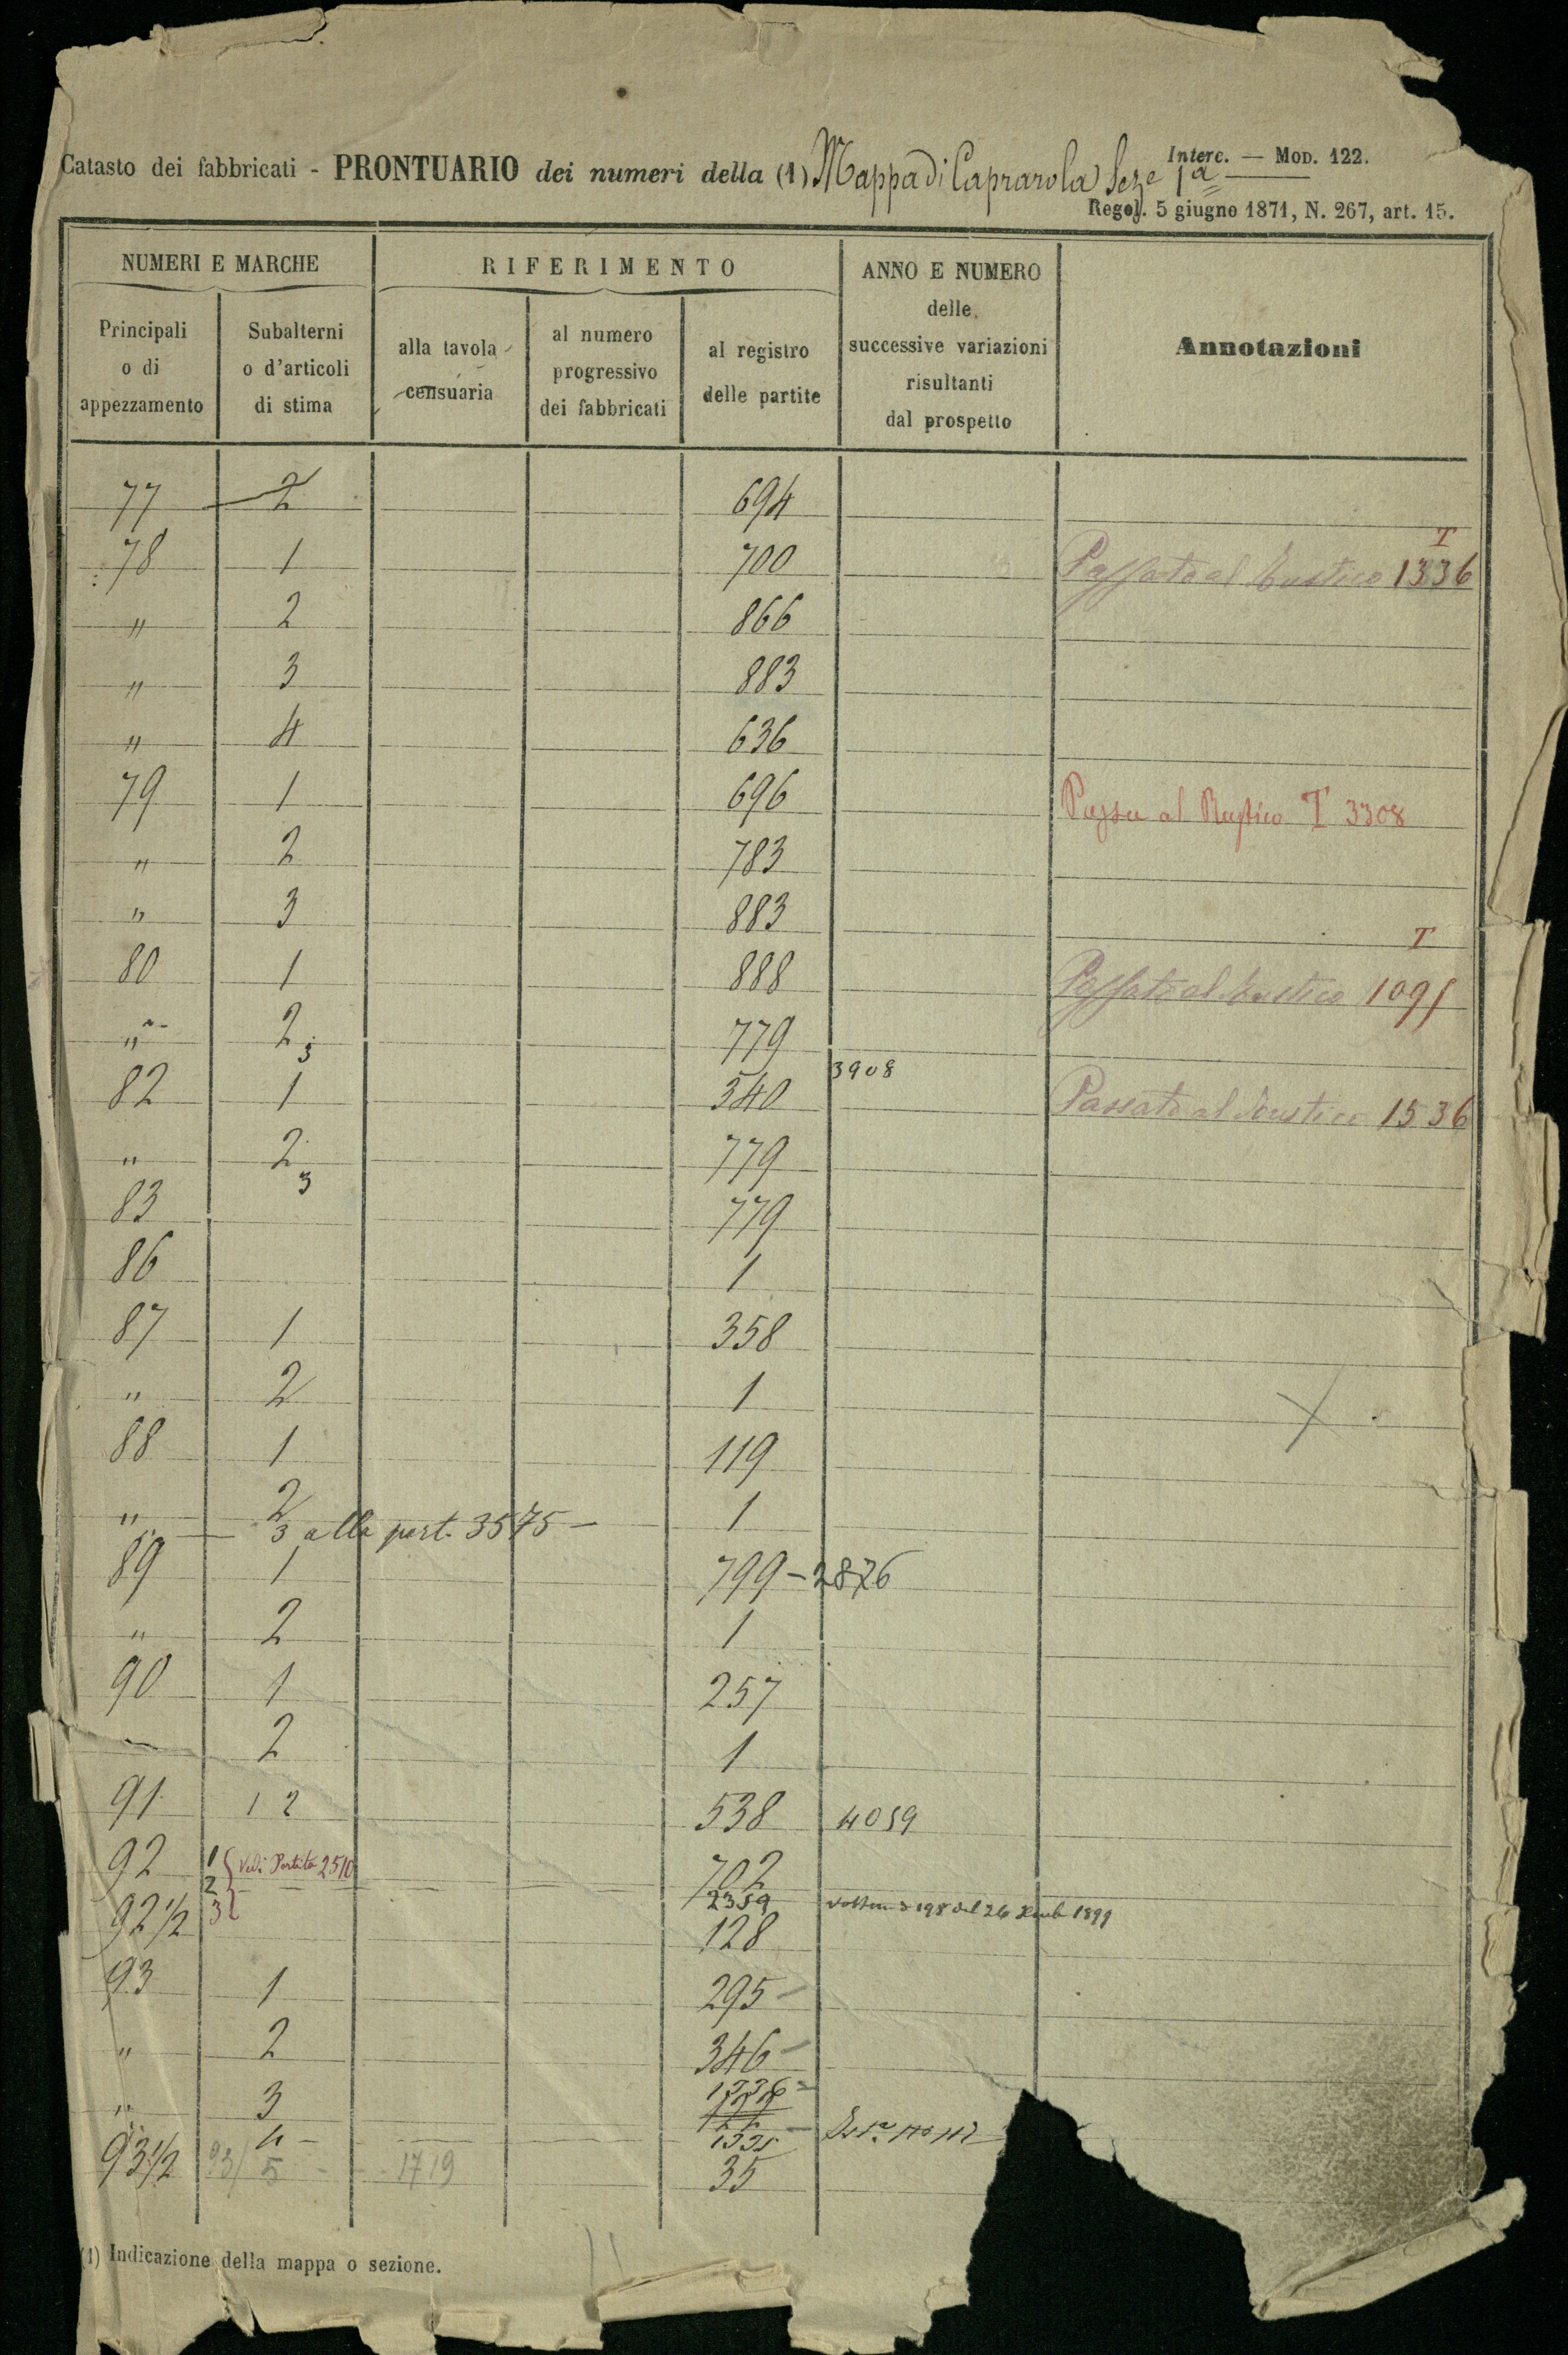 Interc. — Mod. 122.
Catasto dei fabbricati - PRONTUARIO dei numeri della (1) Mappa di Caprarola Seze 1a
Regol. 5 giugno 1871, N. 267, art. 15.
NUMERI E MARCHE RIFERIMENTO ANNO E NUMERO delle successive variazioni risultanti dal prospetto Annotazioni
Principali o di appezzamento Subalterni o d'articoli di stima alla tavola censuaria al numero progressivo dei fabbricati al registro delle partite
77 2 694
78 1 700 Passato al Rustico T 1336
" 2 866
" 3 883
" 4 636
79 1 696 Passa al Rustico T 3308
" 2 783
" 3 883
80 1 888 Passato al Rustico T 1091
" 2 779
3
3908
82 1 340 Passato al Rustico 1536
" 2 779
3
83 779
86 1
87 1 358
" 2 1
88 1 119
" 2 1
" 3 alla part. 3575
89 1 799 - 2876
" 2 1
90 1 257
2 1
91 1 2 538 4059
92 1 Vedi Partita 2510 702
2
2359 1899
92 1/2 3 128
93 1 295
" 2 346
" 3 1336
" 4
93 1/2 93/5 1719 35
(1) Indicazione della mappa o sezione.